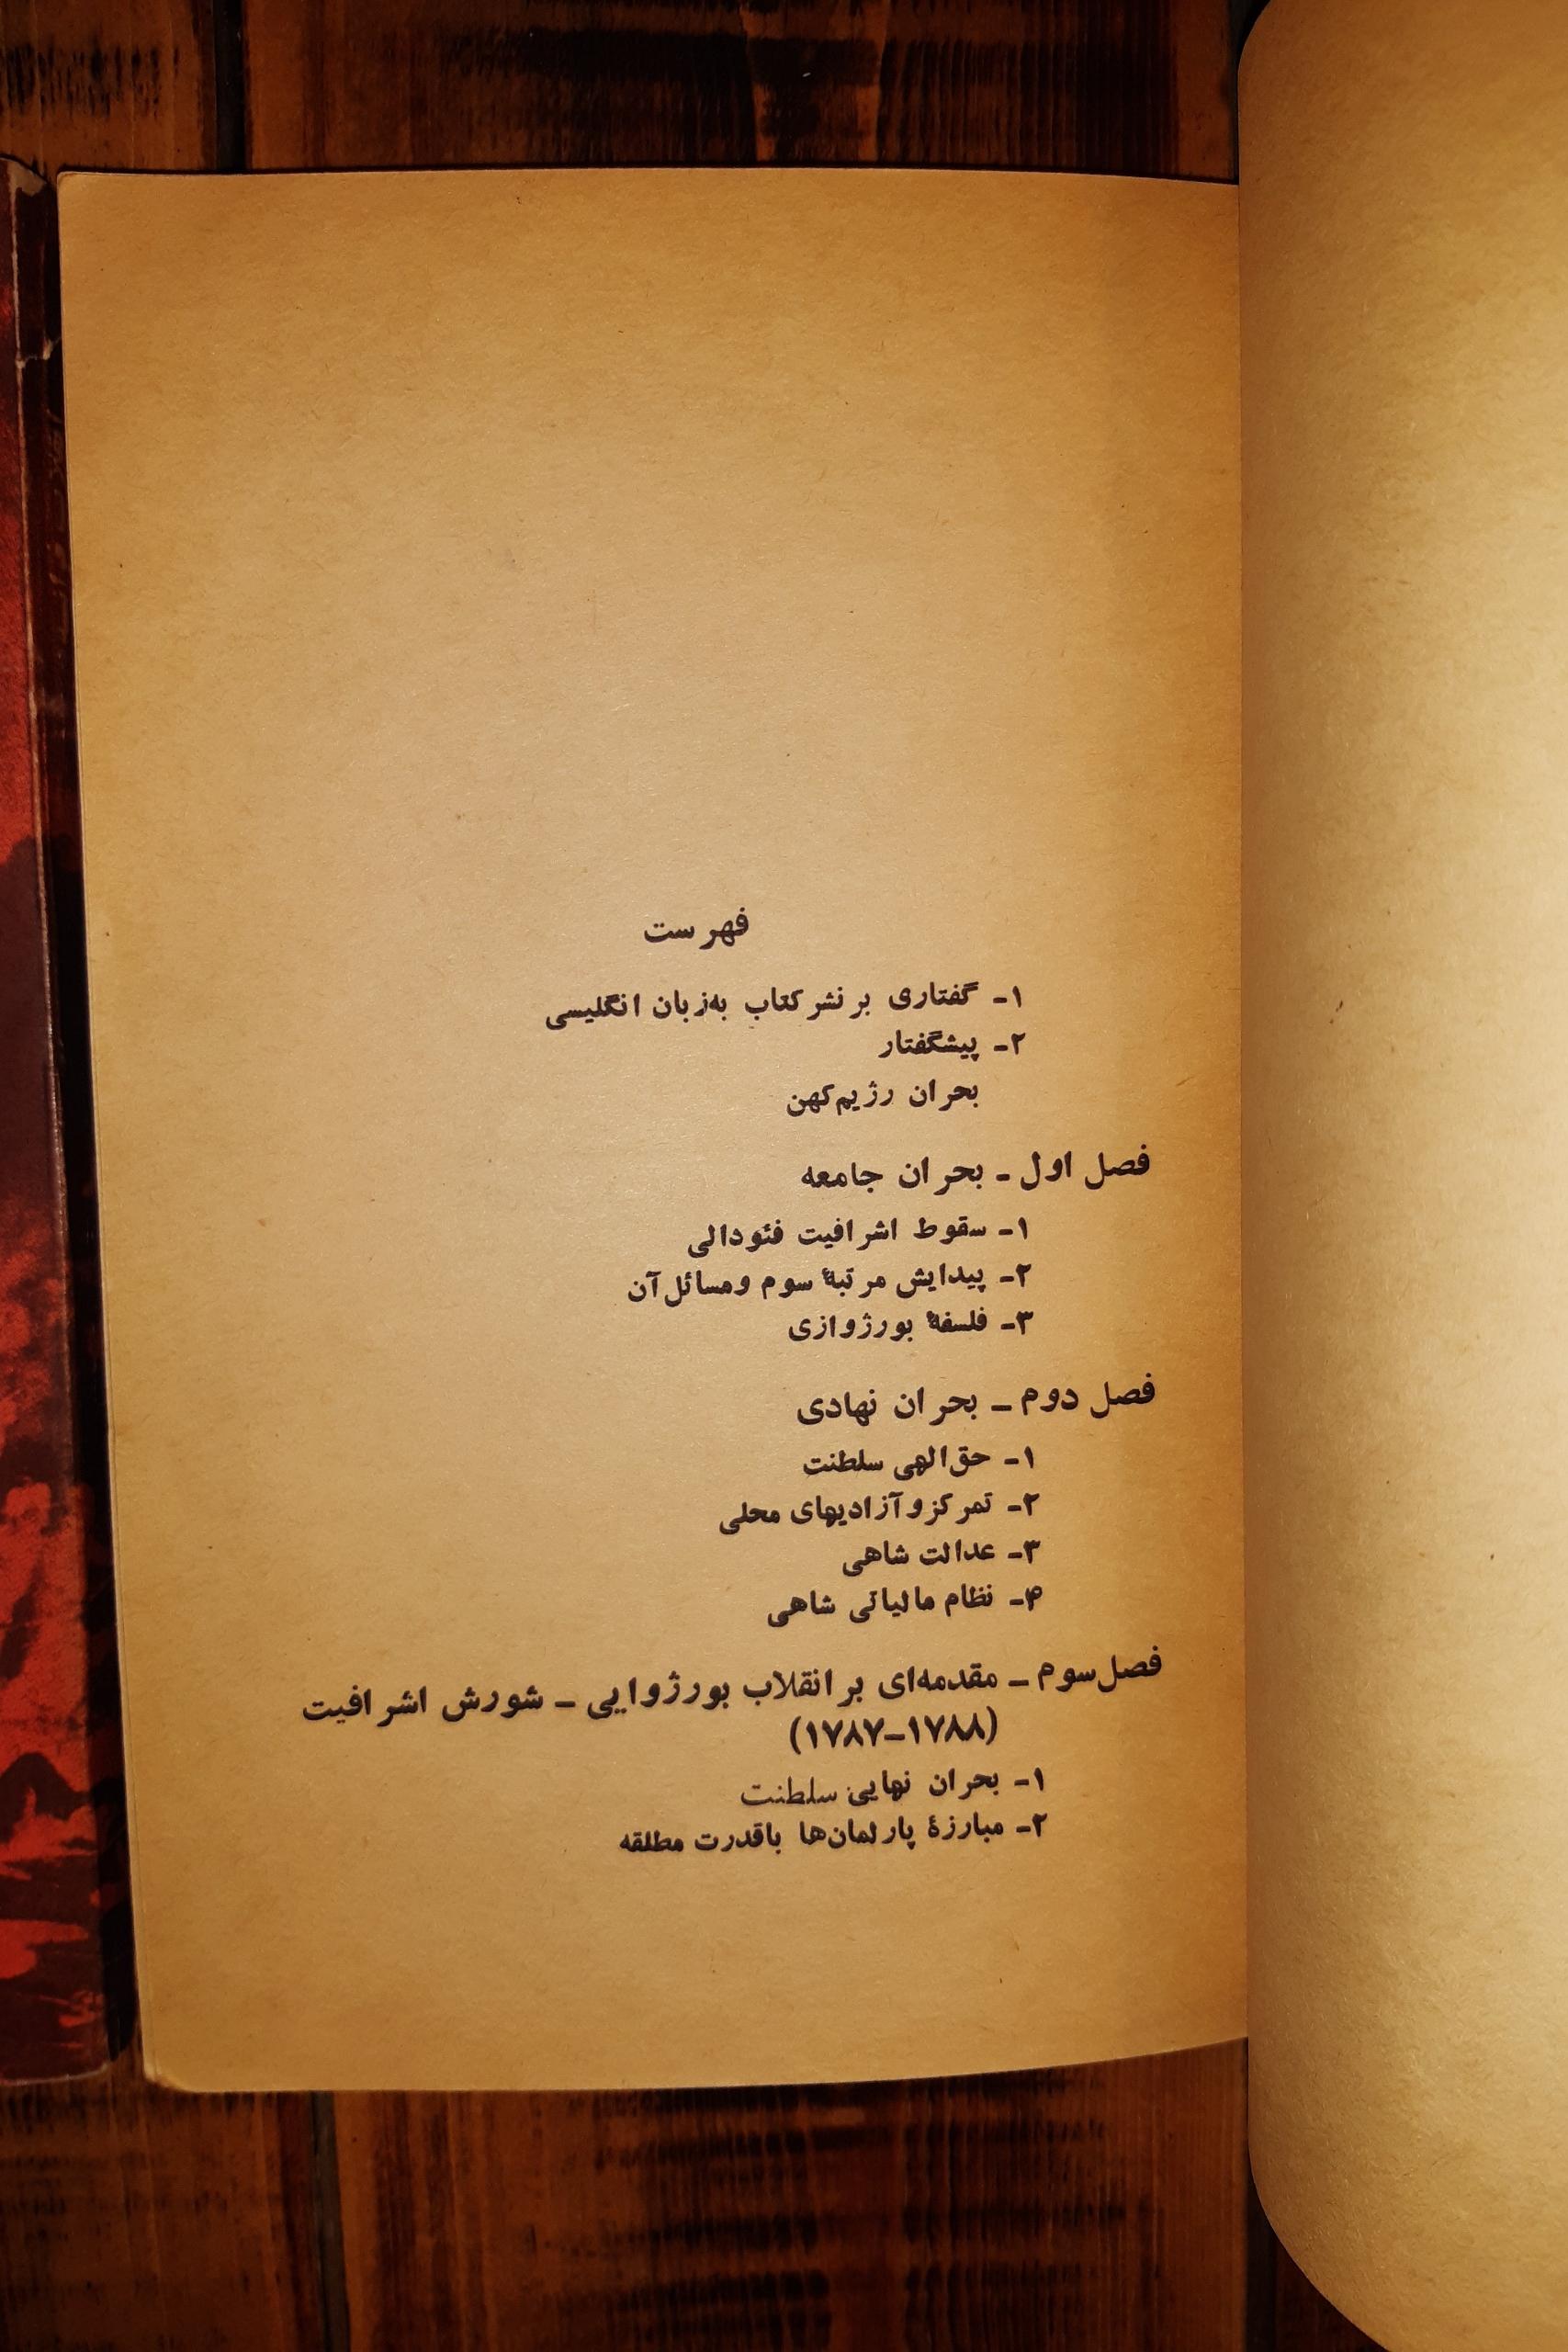 فهرست
۱- گفتاری بر نشر کتاب به‌زبان انگلیسی
۲- پیشگفتار
بحران رژیم کهن
فصل اول - بحران جامعه
۱- سقوط اشرافیت فئودالی
۲- پیدایش مرتبهٔ سوم ومسائل آن
۳- فلسفهٔ بورژوازی
فصل دوم – بحران نهادی
۱- حق‌الهی سلطنت
۲- تمرکز و آزادیهای محلی
۳- عدالت شاهی
۴- نظام مالیاتی شاهی
فصل سوم – مقدمه‌ای بر انقلاب بورژوایی – شورش اشرافیت
(۱۷۸۷–۱۷۸۸)
۱- بحران نهایی سلطنت
۲- مبارزهٔ پارلمان‌ها باقدرت مطلقه